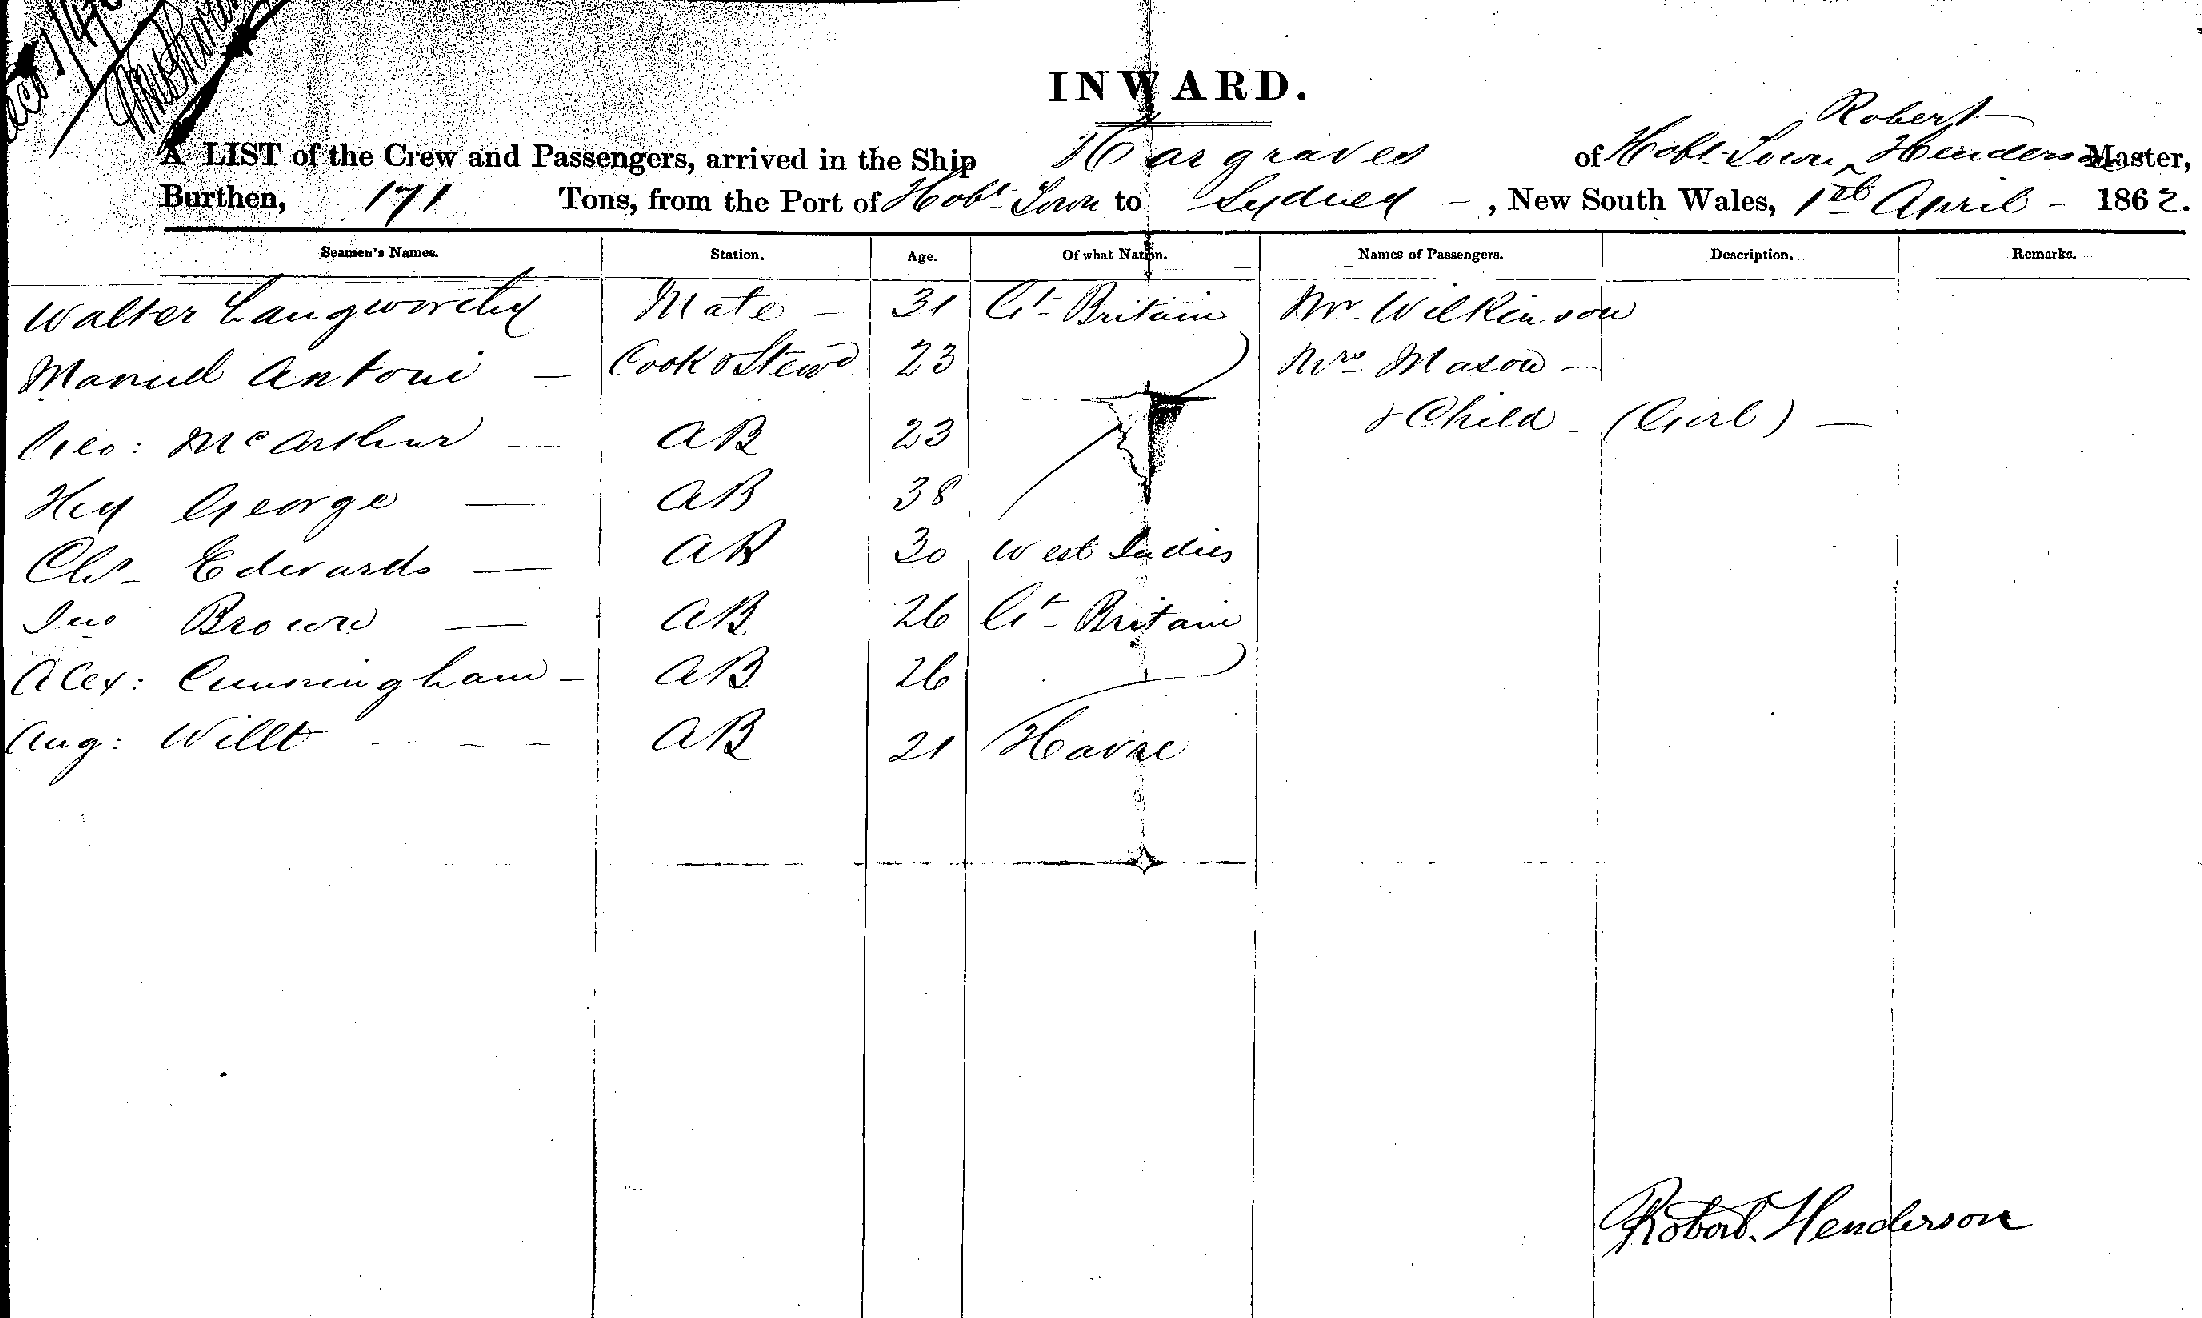 INWARD.
Robert
A LIST of the Crew and Passengers, arrived in the Ship Hargraves of Hobt. Town, Henderson Master,
Burthen, 171 Tons, from the Port of Hobt Town to Sydney - , New South Wales, 1st April - 1862.
Seamen's Names. Station. Age. Of what Nation. Names of Passengers. Description. Remarks.
Walter Langworthy Mate - 31 Gt Britain Mr. Wilkinson
Manuel Antoni - Cook & Stewd 23 Mrs Mason -
& Child - (Girl) -
Geo: McArthur - AB 23
Hy George - AB 38
Chs Edwards - AB 30 West Indies
Jno Brown - AB 26 Gt Britain
Alex: Cunningham - AB 26
Aug: Willt - - - AB 21 Havre
Robert Henderson